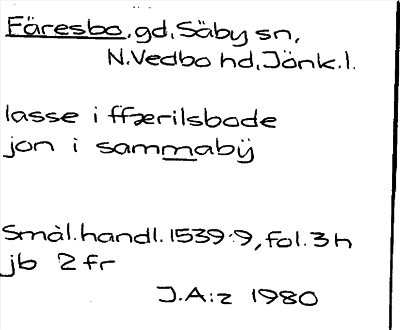 Färesbo, gd, Säby sn,
N. Vedbo hd, Jönk. l.
lasse i ffærilsbode
jon i sammabÿ
Smål. handl. 1539:9, fol. 3 h
jb 2 fr
J.A:z 1980